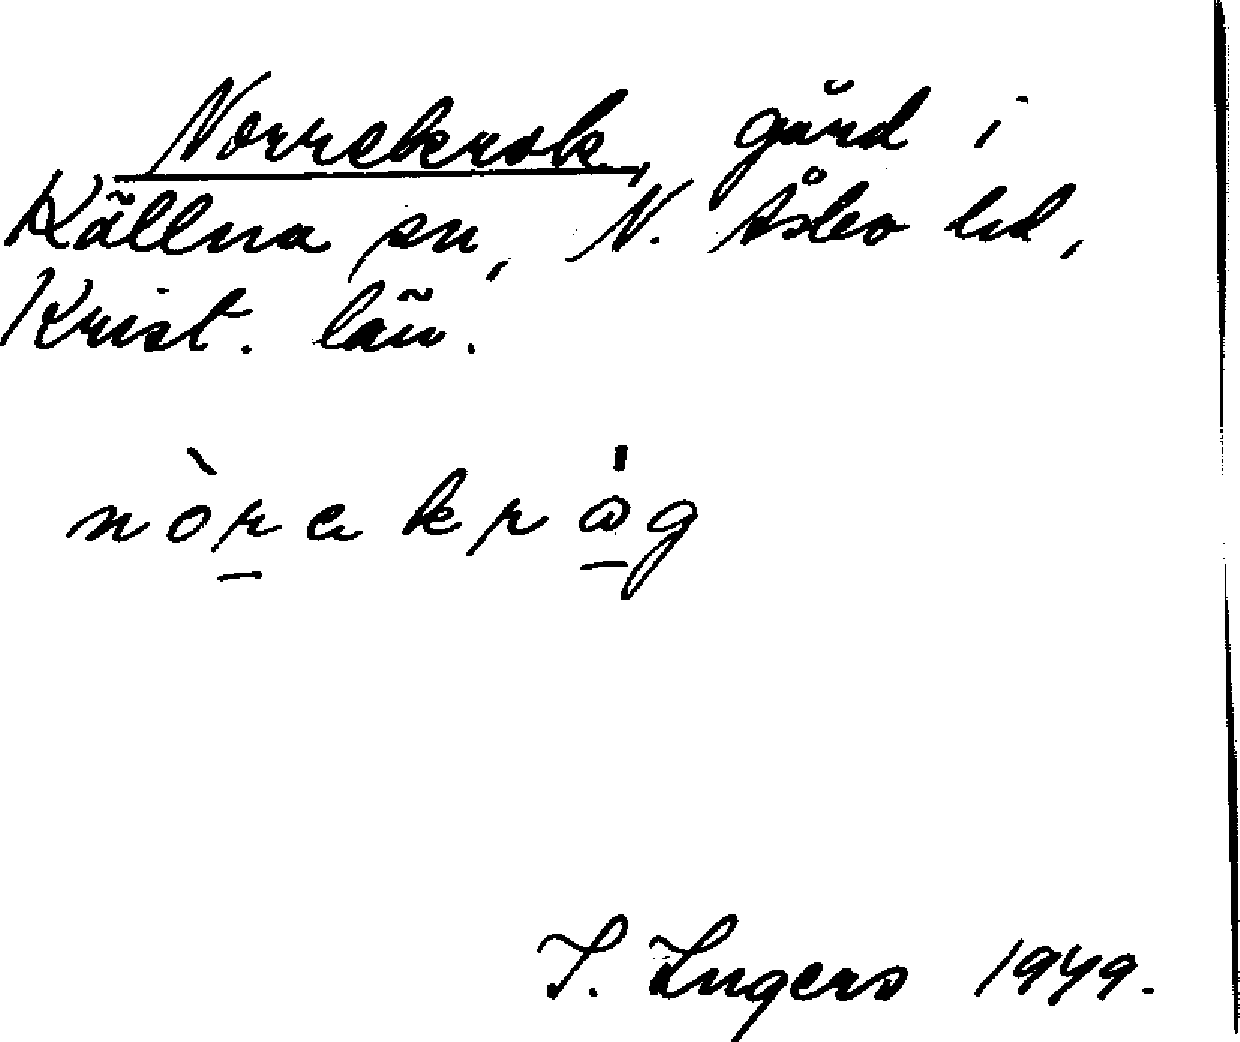 Norrekrok, gård i
Källna sn, N. Åsbo hd,
Krist. län.
nòrakrǻg
I. Ingers 1949.